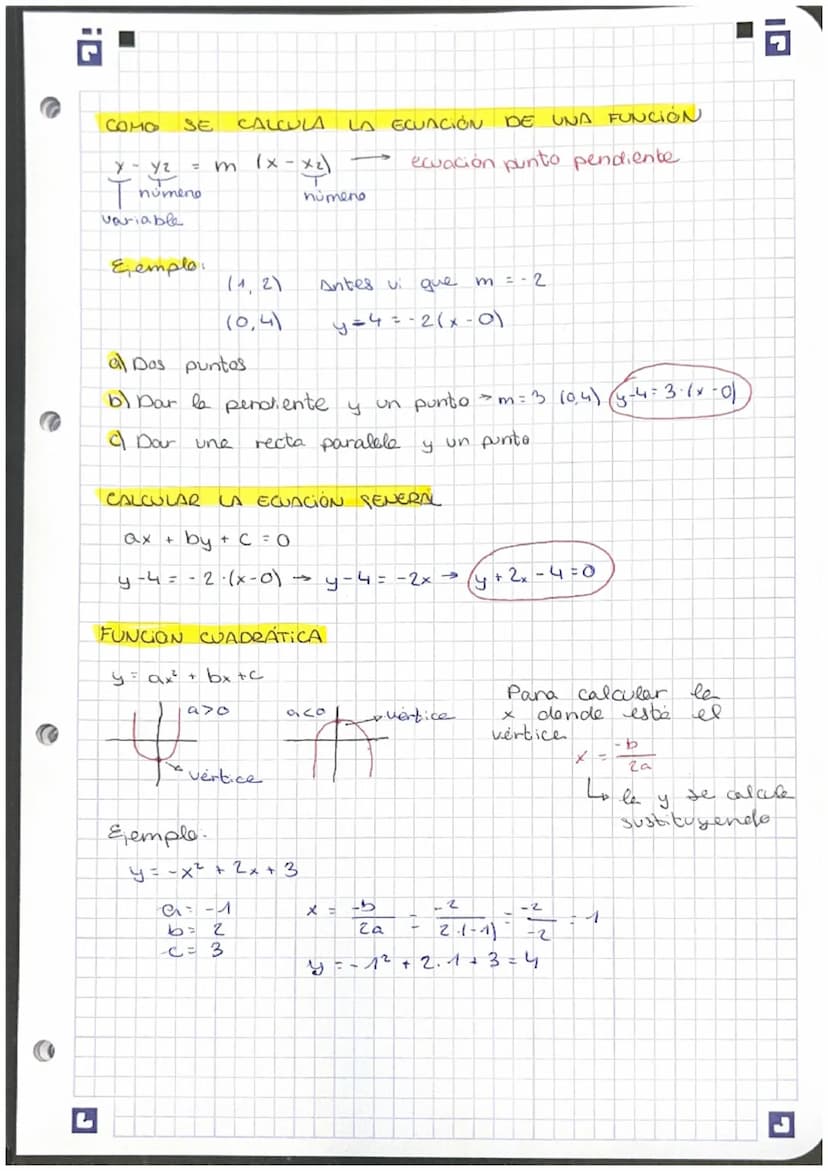 COMO SE CALCULA LA ECUACIÓN DE UNA FUNCIÓN
y - y2 = m (x - x2) → ecuación punto pendiente
número número
variable
Ejemplo:
(1, 2) Antes vi que m = -2
(0,4) y-4 = -2(x-0)
a) Dos puntos
b) Dar la pendiente y un punto → m=3 (0,4) y-4=3·(x-0)
c) Dar una recta paralela y un punto
CALCULAR LA ECUACIÓN GENERAL
ax + by + c = 0
y-4 = -2·(x-0) → y-4 = -2x → y + 2x - 4 = 0
FUNCION CUADRÁTICA
y = ax² + bx + c
a>0 a<0 vértice
vértice
Para calcular la
x donde está el
vértice
x = -b/2a
↳ la y se calcula
sustituyendo
Ejemplo.
y = -x² + 2x + 3
a = -1
b = 2
c = 3
x = -b/2a = -2/2·(-1) = -2/-2 = 1
y = -1² + 2·1 + 3 = 4